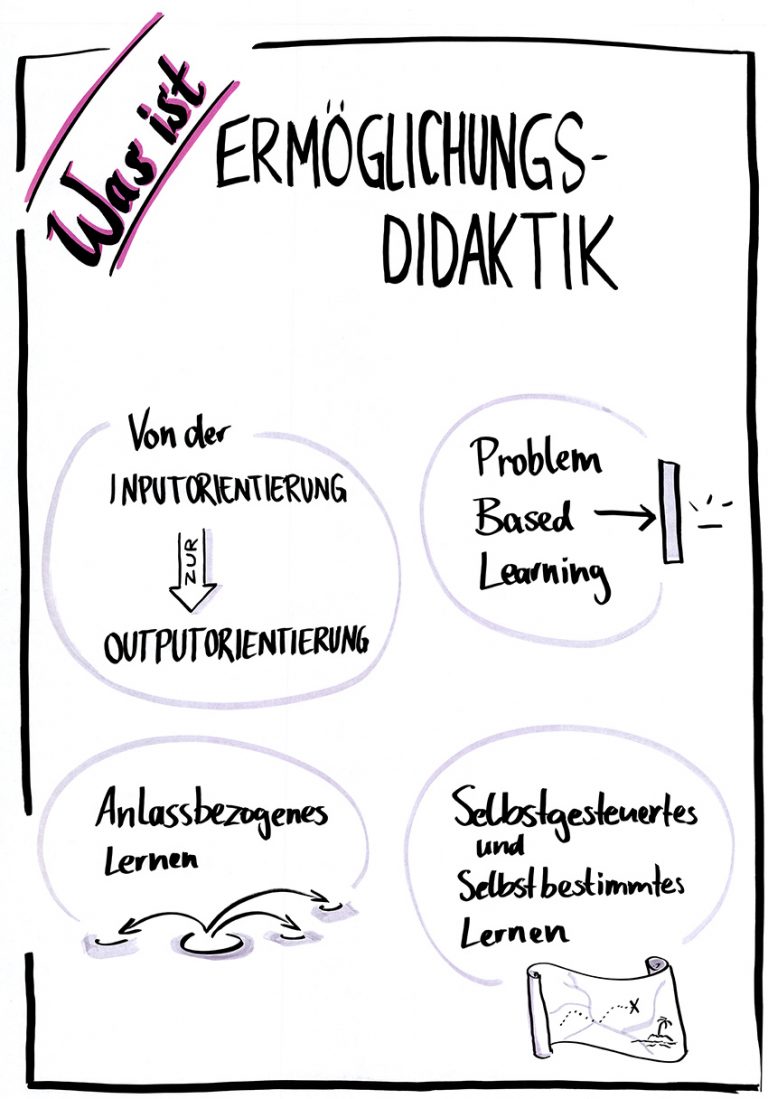 Was ist
ERMÖGLICHUNGS-
DIDAKTIK
Von der
INPUTORIENTIERUNG
ZUR
OUTPUTORIENTIERUNG
Problem
Based
Learning
Anlassbezogenes
Lernen
Selbstgesteuertes
und
Selbstbestimmtes
Lernen
X